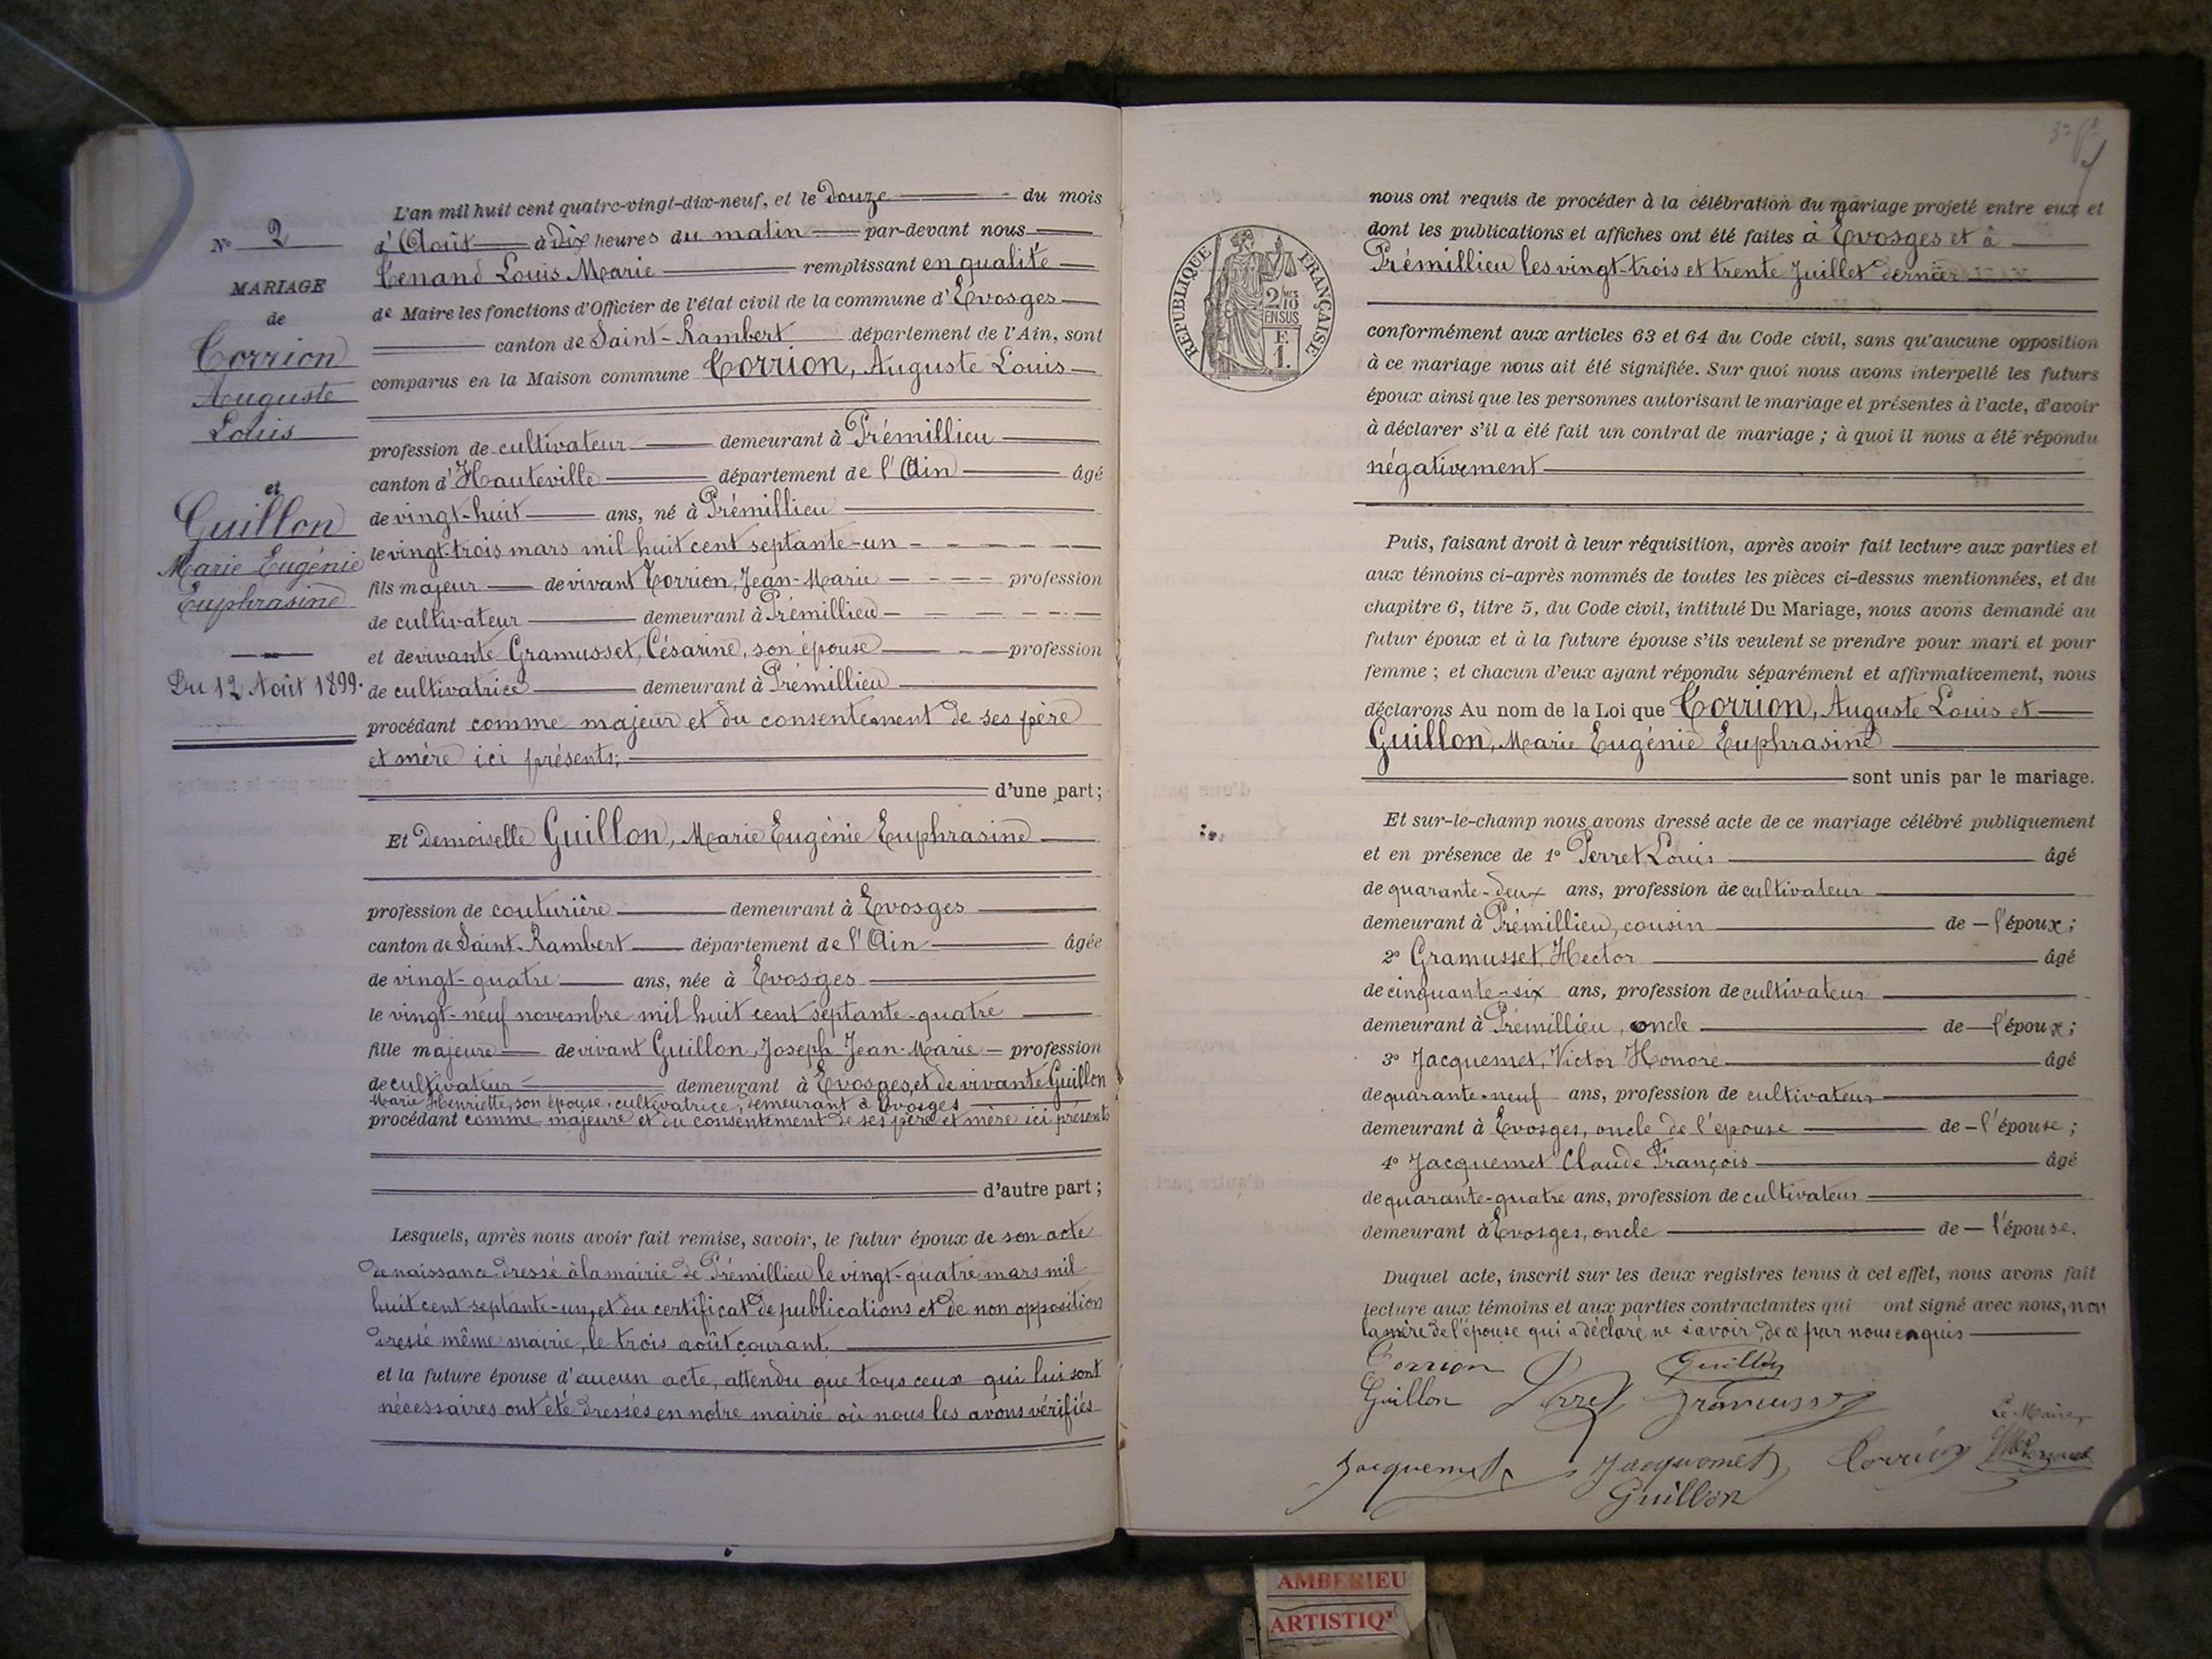 N° 2
MARIAGE
de
Corrion
Auguste
Louis
et
Guillon
Marie Eugénie
Euphrasine
Du 12 Août 1899.
L'an mil huit cent quatre-vingt-dix-neuf, et le douze du mois
d'Août à dix heures du matin par-devant nous
Tenand Louis Marie remplissant en qualité
de Maire les fonctions d'Officier de l'état civil de la commune d'Evosges
canton de Saint-Rambert département de l'Ain, sont
comparus en la Maison commune Corrion, Auguste Louis
profession de cultivateur demeurant à Prémillieu
canton d'Hauteville département de l'Ain âgé
de vingt-huit ans, né à Prémillieu
le vingt-trois mars mil huit cent septante-un
fils majeur de vivant Corrion, Jean-Marie profession
de cultivateur demeurant à Prémillieu
et de vivante Gramusset, Césarine, son épouse profession
de cultivatrice demeurant à Prémillieu
procédant comme majeur et du consentement de ses père
et mère ici présents;
d'une part;
Et Demoiselle Guillon, Marie Eugénie Euphrasine
profession de couturière demeurant à Evosges
canton de Saint-Rambert département de l'Ain âgée
de vingt-quatre ans, née à Evosges
le vingt-neuf novembre mil huit cent septante-quatre
fille majeure de vivant Guillon, Joseph Jean-Marie profession
de cultivateur demeurant à Evosges, et de vivante Guillon
Marie Henriette, son épouse, cultivatrice, demeurant à Evosges
procédant comme majeure et du consentement de ses père et mère ici présents
d'autre part;
Lesquels, après nous avoir fait remise, savoir, le futur époux de son acte
de naissance dressé à la mairie de Prémillieu le vingt-quatre mars mil
huit cent septante-un, et du certificat de publications et de non opposition
dressé même mairie, le trois août courant.
et la future épouse d'aucun acte, attendu que tous ceux qui lui sont
nécessaires ont été dressés en notre mairie où nous les avons vérifiés
RÉPUBLIQUE FRANÇAISE
2/10
EN SUS
F.
1.
nous ont requis de procéder à la célébration du mariage projeté entre eux et
dont les publications et affiches ont été faites à Evosges et à
Prémillieu les vingt-trois et trente Juillet dernier
conformément aux articles 63 et 64 du Code civil, sans qu'aucune opposition
à ce mariage nous ait été signifiée. Sur quoi nous avons interpellé les futurs
époux ainsi que les personnes autorisant le mariage et présentes à l'acte, d'avoir
à déclarer s'il a été fait un contrat de mariage; à quoi il nous a été répondu
négativement
Puis, faisant droit à leur réquisition, après avoir fait lecture aux parties et
aux témoins ci-après nommés de toutes les pièces ci-dessus mentionnées, et du
chapitre 6, titre 5, du Code civil, intitulé Du Mariage, nous avons demandé au
futur époux et à la future épouse s'ils veulent se prendre pour mari et pour
femme; et chacun d'eux ayant répondu séparément et affirmativement, nous
déclarons Au nom de la Loi que Corrion, Auguste Louis et
Guillon, Marie Eugénie Euphrasine
sont unis par le mariage.
Et sur-le-champ nous avons dressé acte de ce mariage célébré publiquement
et en présence de 1° Perret, Louis âgé
de quarante-deux ans, profession de cultivateur
demeurant à Prémillieu, cousin de l'époux;
2° Gramusset, Hector âgé
de cinquante-six ans, profession de cultivateur
demeurant à Prémillieu, oncle de l'époux;
3° Jacquemet, Victor Honoré âgé
de quarante-neuf ans, profession de cultivateur
demeurant à Evosges, oncle de l'épouse de l'épouse;
4° Jacquemet Claude François âgé
de quarante-quatre ans, profession de cultivateur
demeurant à Evosges, oncle de l'épouse.
Duquel acte, inscrit sur les deux registres tenus à cet effet, nous avons fait
lecture aux témoins et aux parties contractantes qui ont signé avec nous, non
la mère de l'épouse qui a déclaré ne savoir, de ce par nous enquis
Corrion Guillon
Guillon Perret Gramusset
Le Maire,
Jacquemet Jacquemet Corrion
Guillon
AMBERIEU
ARTISTIQ